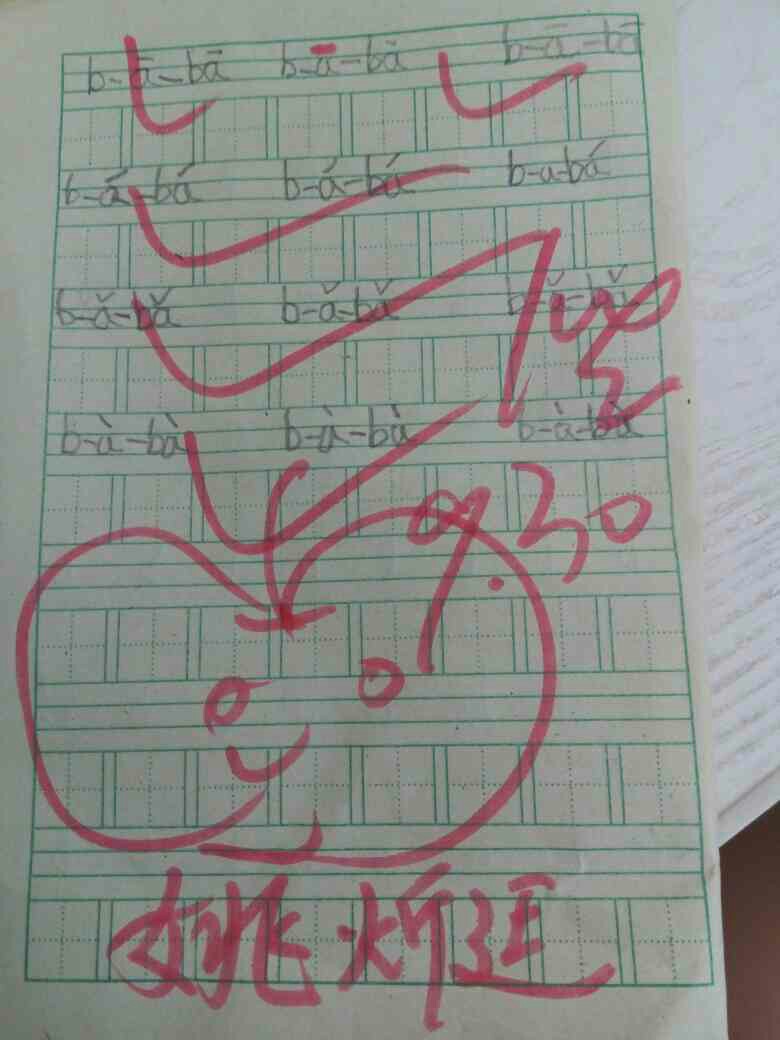 b-ā-bā b-ā-bā b-ā-bā
b-á-bá b-á-bá b-a-bá
b-ǎ-bǎ b-ǎ-bǎ b-ǎ-bǎ
b-à-bà b-à-bà b-à-bà
100
9.30
姚炘延